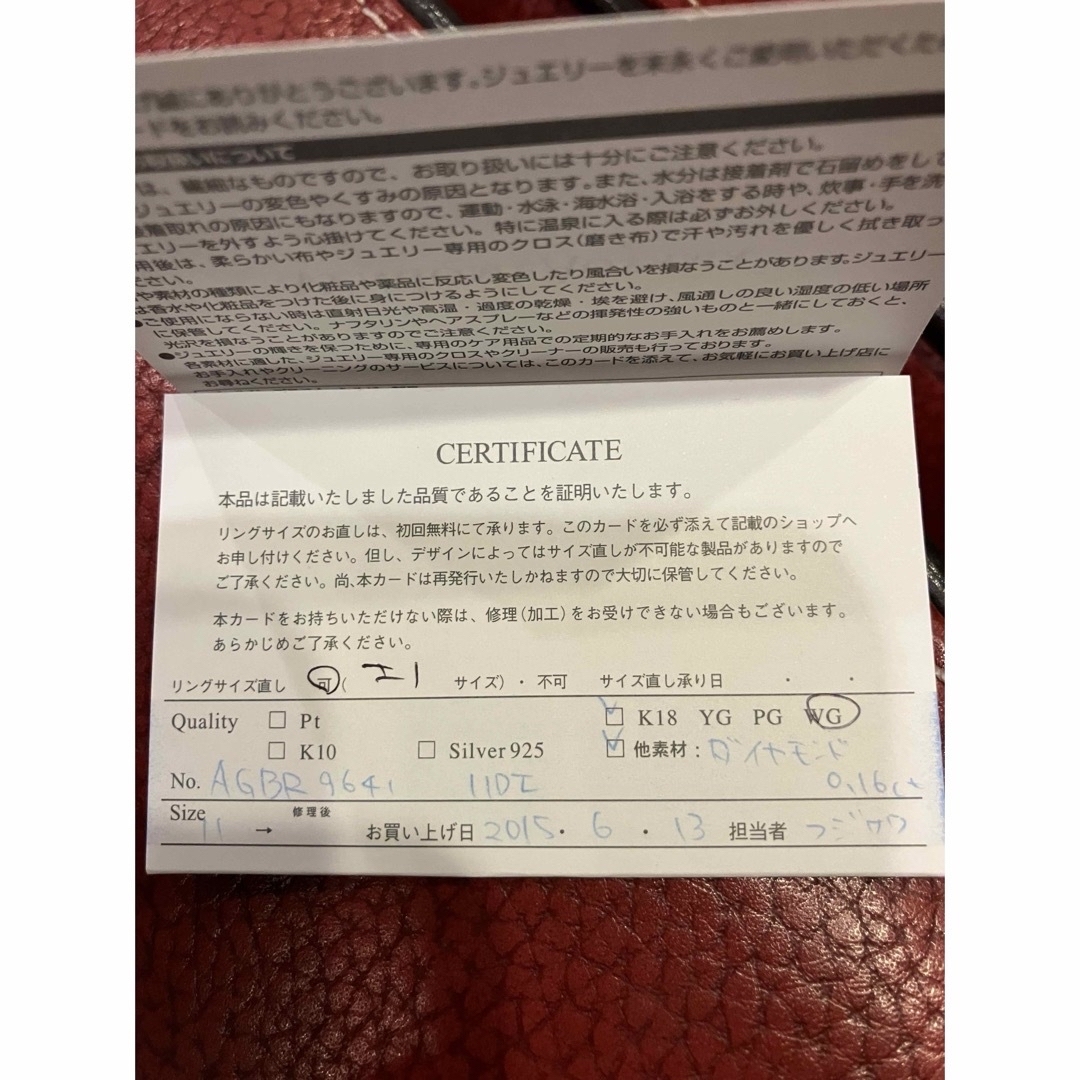 にありがとうございます。ジュエリーを末永くご愛用いただくため
ードをお読みください。
お取扱いについて
は、繊細なものですので、お取り扱いには十分にご注意ください。
ジュエリーの変色やくすみの原因となります。また、水分は接着剤で石留めをして
着取れの原因にもなりますので、運動・水泳・海水浴・入浴をする時や、炊事・手を洗
エリーを外すよう心掛けてください。特に温泉に入る際は必ずお外しください。
用後は、柔らかい布やジュエリー専用のクロス(磨き布)で汗や汚れを優しく拭き取っ
さい。
や素材の種類により化粧品や薬品に反応し変色したり風合いを損なうことがあります。ジュエリー
は香水や化粧品をつけた後に身につけるようにしてください。
●ご使用にならない時は直射日光や高温・過度の乾燥・埃を避け、風通しの良い湿度の低い場所
で保管してください。ナフタリンやヘアスプレーなどの揮発性の強いものと一緒にしておくと、
光沢を損なうことがありますのでご注意ください。
●ジュエリーの輝きを保つために、専用のケア用品での定期的なお手入れをお薦めします。
各素材に適した、ジュエリー専用のクロスやクリーナーの販売も行っております。
お手入れやクリーニングのサービスについては、このカードを添えて、お気軽にお買い上げ店に
お尋ねください。
CERTIFICATE
本品は記載いたしました品質であることを証明いたします。
リングサイズのお直しは、初回無料にて承ります。このカードを必ず添えて記載のショップへ
お申し付けください。但し、デザインによってはサイズ直しが不可能な製品がありますので
ご了承ください。尚、本カードは再発行いたしかねますので大切に保管してください。
本カードをお持ちいただけない際は、修理(加工)をお受けできない場合もございます。
あらかじめご了承ください。
リングサイズ直し 可( ±1 サイズ)・不可 サイズ直し承り日 ・ ・
Quality □ Pt □ K18 YG PG WG
□ K10 □ Silver925 □ 他素材: ダイヤモンド
No. AGBR9641 11DI 0.16ct
Size 11 → 修理後 お買い上げ日 2015・6・13 担当者 フジサワ